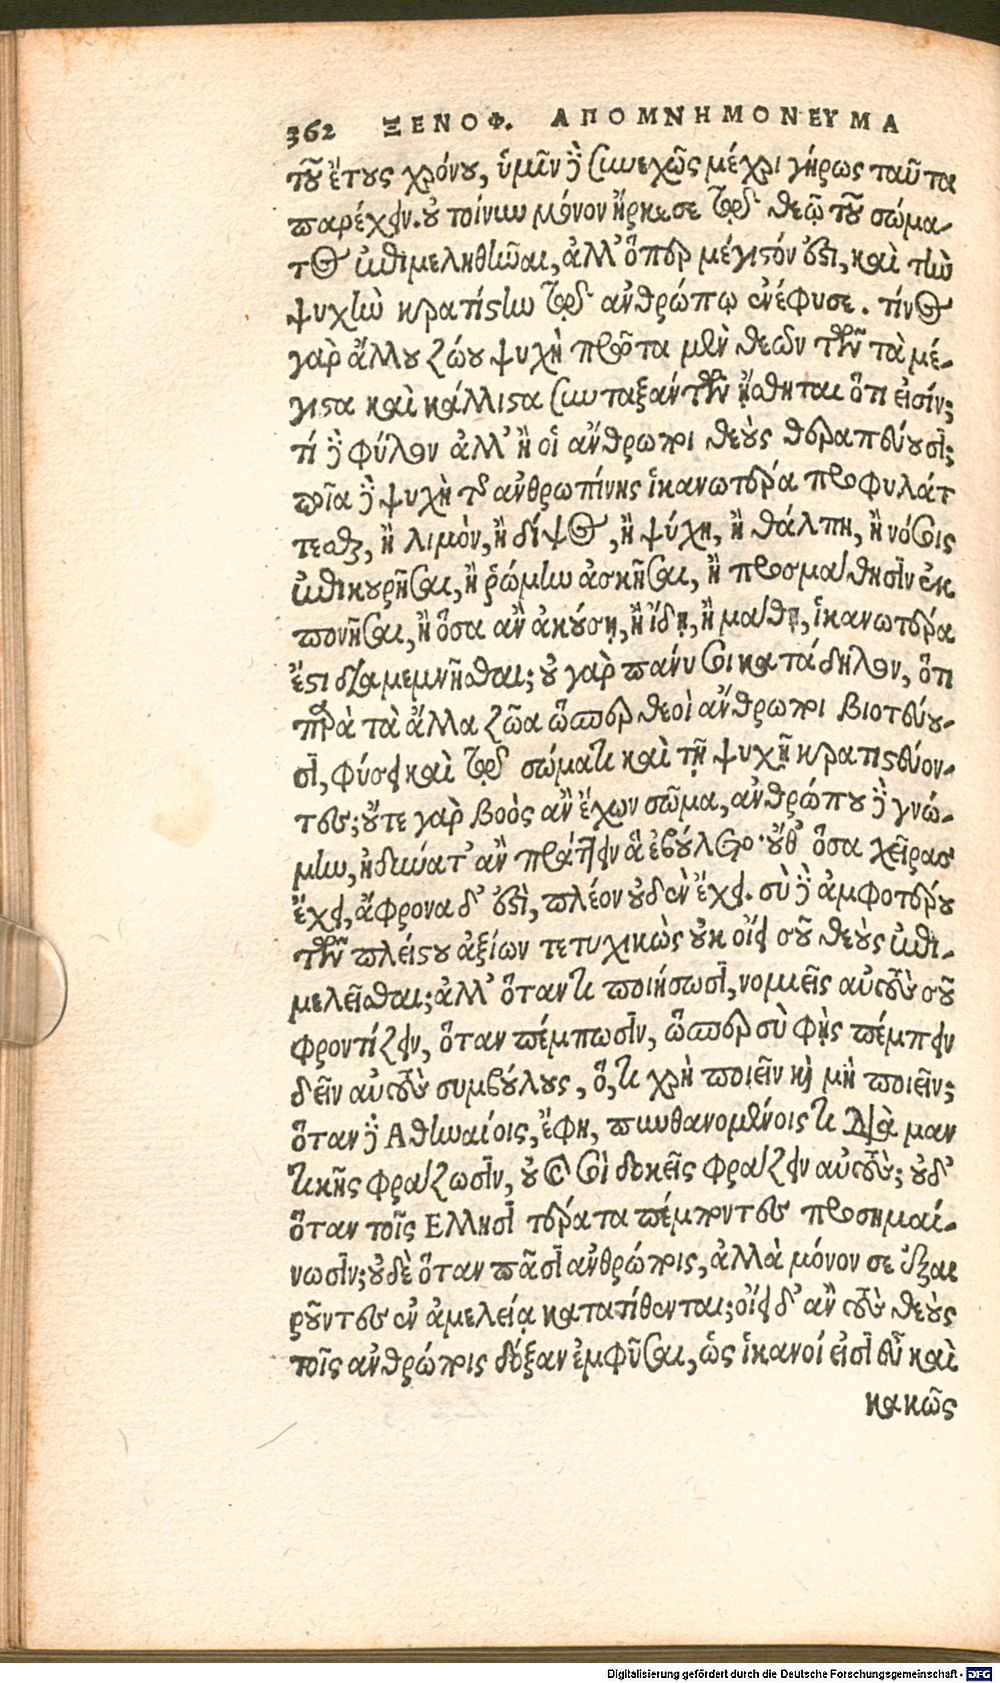 362 ΞΕΝΟΦ. ΑΠΟΜΝΗΜΟΝΕΥΜΑ
τοῦ ἔτους χρόνου, ὑμῖν δὲ συνεχῶς μέχρι γήρως ταῦτα
παρέχειν. οὐ τοίνυν μόνον ἤρκεσε τῷ θεῷ τοῦ σώμα-
τος ἐπιμεληθῆναι, ἀλλ' ὅπερ μέγιστόν ἐστι, καὶ τὴν
ψυχὴν κρατίστην τῷ ἀνθρώπῳ ἐνέφυσε. τίνος
γὰρ ἄλλου ζώου ψυχὴ πρῶτα μὲν θεῶν τῶν τὰ μέ-
γιστα καὶ κάλλιστα συνταξάντων ᾔσθηται ὅτι εἰσίν;
τί δὲ φύλον ἀλλ' ἢ οἱ ἄνθρωποι θεοὺς θεραπεύουσι;
ποῖα δὲ ψυχὴ τῆς ἀνθρωπίνης ἱκανωτέρα προφυλάτ
τεσθαι, ἢ λιμὸν, ἢ δίψος, ἢ ψύχη, ἢ θάλπη, ἢ νόσοις
ἐπικουρῆσαι, ἢ ῥώμην ἀσκῆσαι, ἢ πρὸς μάθησιν ἐκ
πονῆσαι, ἢ ὅσα ἂν ἀκούσῃ, ἢ ἴδῃ, ἢ μάθῃ, ἱκανωτέρα
ἔστι διαμεμνῆσθαι; οὐ γὰρ πάνυ σοι κατάδηλον, ὅτι
παρὰ τὰ ἄλλα ζῶα ὥσπερ θεοὶ ἄνθρωποι βιοτεύου-
σι, φύσει καὶ τῷ σώματι καὶ τῇ ψυχῇ κρατιστεύον-
τες; οὔτε γὰρ βοὸς ἂν ἔχων σῶμα, ἀνθρώπου δὲ γνώ-
μην, ἠδύνατ' ἂν πράττειν ἃ ἐβούλετο· οὔθ' ὅσα χεῖρας
ἔχει, ἄφρονα δ' ἐστὶ, πλέον οὐδὲν ἔχει. σὺ δὲ ἀμφοτέρου
τῶν πλείστου ἀξίων τετυχικὼς οὐκ οἴει σοῦ θεοὺς ἐπι-
μελεῖσθαι; ἀλλ' ὅταν τι ποιήσωσι, νομιεῖς αὐτοὺς σοῦ
φροντίζειν, ὅταν πέμπωσιν, ὥσπερ σὺ φῂς πέμπειν
δεῖν αὐτοὺς συμβούλους, ὅ, τι χρὴ ποιεῖν καὶ μὴ ποιεῖν;
ὅταν δὲ Ἀθηναίοις, ἔφη, πυνθανομένοις τι διὰ μαν
τικῆς φράζωσιν, οὐ καὶ σοὶ δοκεῖς φράζειν αὐτούς; οὐδ'
ὅταν τοῖς Ἕλλησι τέρατα πέμποντες προσημαί-
νωσιν; οὐδὲ ὅταν πᾶσι ἀνθρώποις, ἀλλὰ μόνον σε ἐξαι
ροῦντες ἐν ἀμελείᾳ κατατίθενται; οἴει δ' ἂν τοὺς θεοὺς
τοῖς ἀνθρώποις δόξαν ἐμφῦσαι, ὡς ἱκανοί εἰσι εὖ καὶ
κακῶς
Digitalisierung gefördert durch die Deutsche Forschungsgemeinschaft - DFG